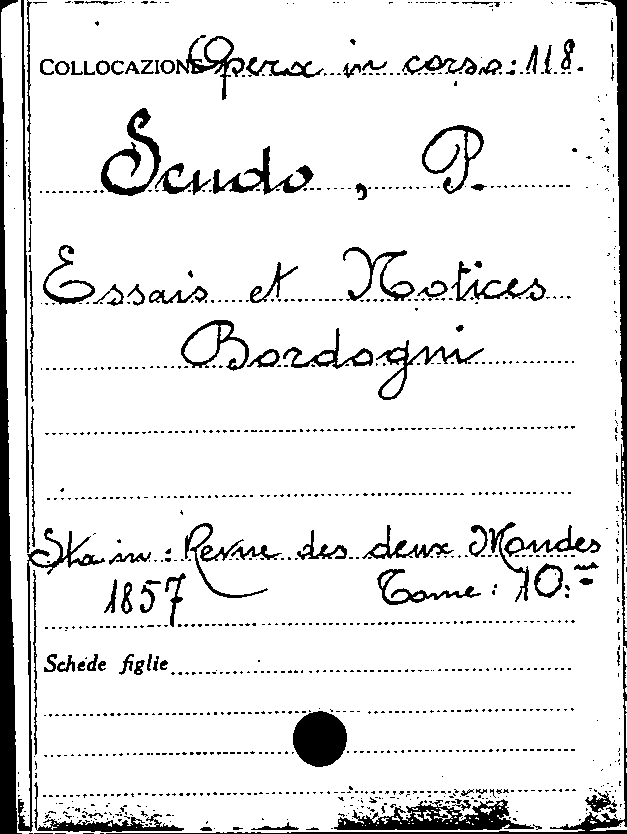 COLLOCAZIONE Opera in corso: 118.
Scudo, P.
Essais et Notices
Bordogni
Sta in: Revue des deux Mondes
1857 Tome: 10:=
Schede figlie